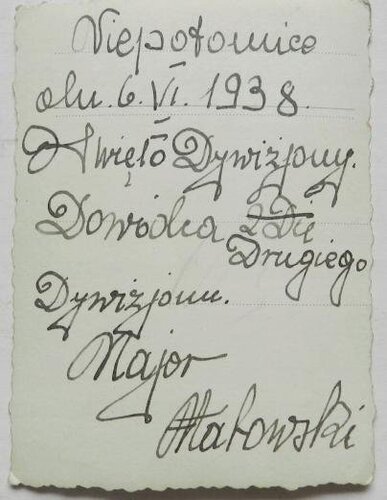 Niepołomice
dn. 6. VI. 1938.
Święto Dywizjonu.
Dowódca 2 Dię
Drugiego
Dywizjonu.
Major
Małowski